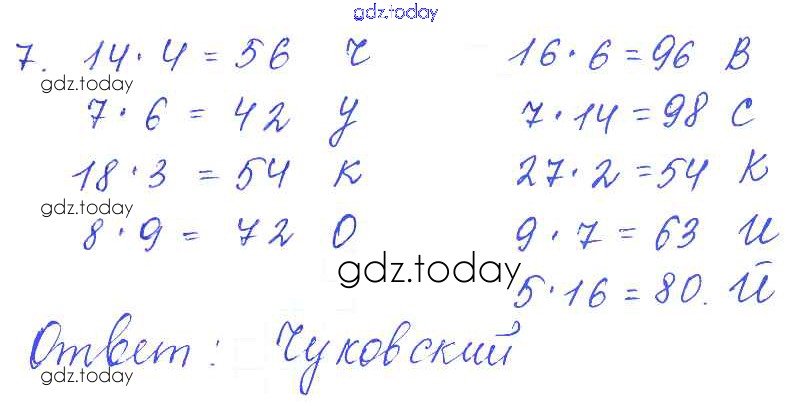 gdz.today
7. 14 · 4 = 56 Ч
gdz.today
7 · 6 = 42 У
18 · 3 = 54 К
gdz.today
8 · 9 = 72 О
16 · 6 = 96 В
7 · 14 = 98 С
27 · 2 = 54 К
9 · 7 = 63 И
gdz.today
5 · 16 = 80. Й
Ответ: Чуковский
gdz.today